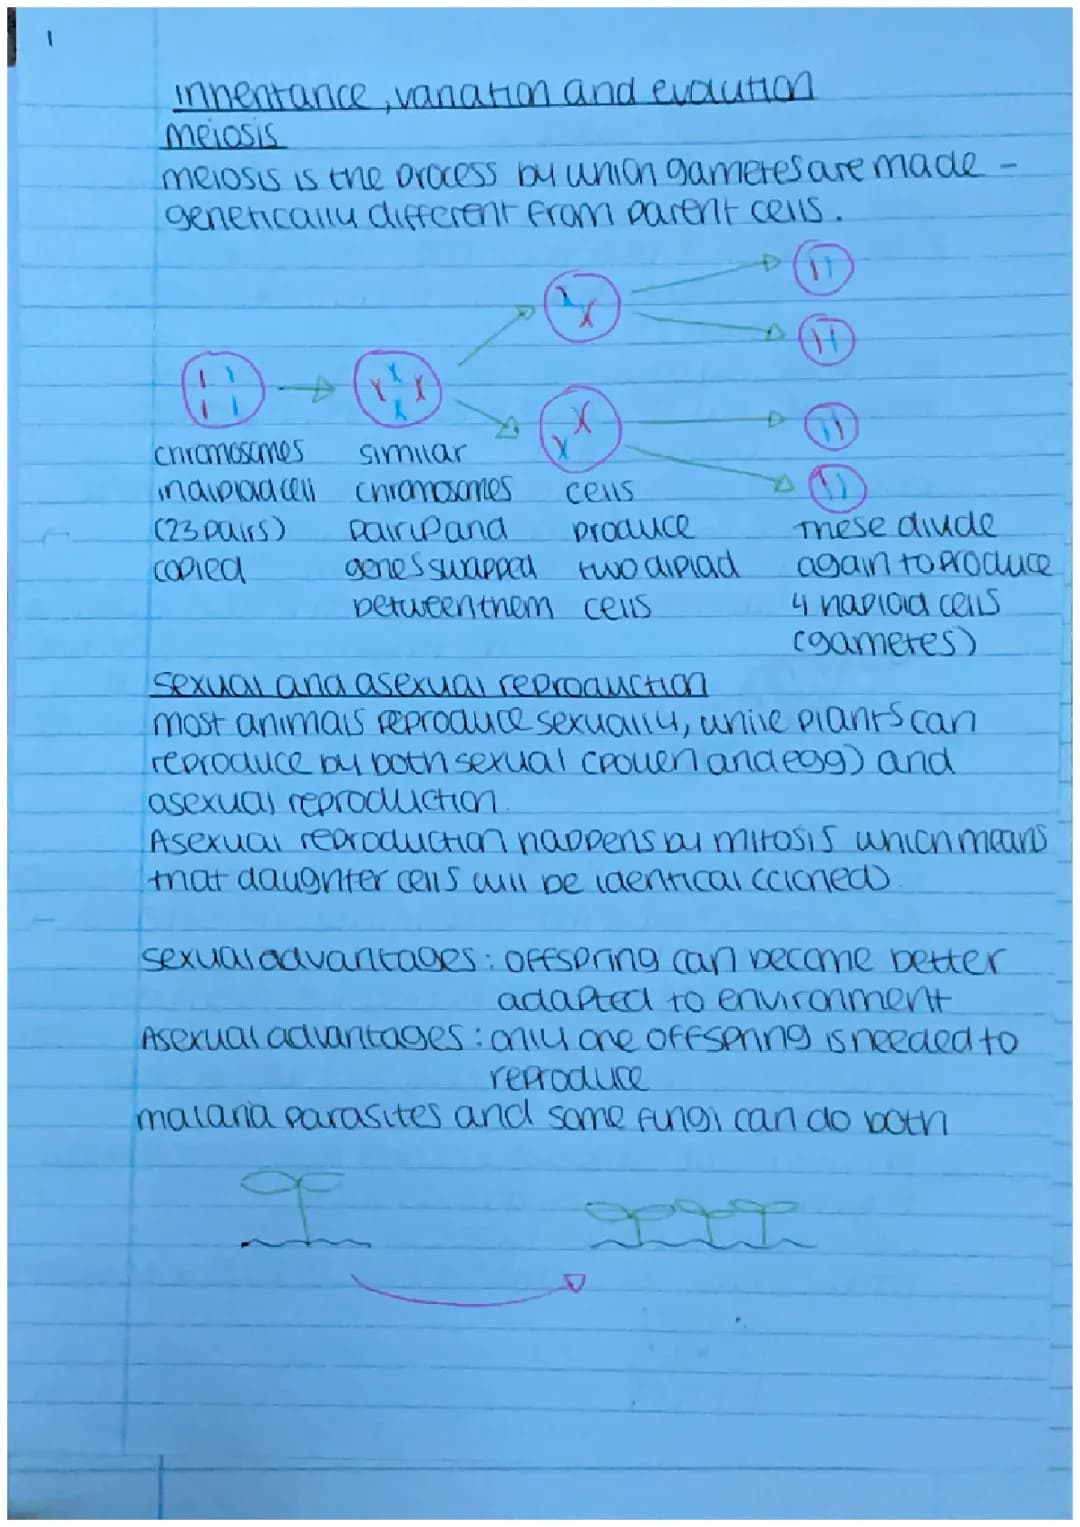 1
Inheritance, variation and evolution
meiosis
meiosis is the process by which gametes are made -
genetically different from parent cells.
chromosomes
in diploid cell
(23 pairs)
copied
similar
chromosomes
pair up and
genes swapped
between them
cells
produce
two diploid
cells
These divide
again to produce
4 haploid cells
(gametes)
sexual and asexual reproduction
most animals reproduce sexually, while plants can
reproduce by both sexual (pollen and egg) and
asexual reproduction.
Asexual reproduction happens by mitosis which means
that daughter cells will be identical (cloned)
sexual advantages: offspring can become better
adapted to environment
Asexual advantages: only one offspring is needed to
reproduce
malaria parasites and some fungi can do both